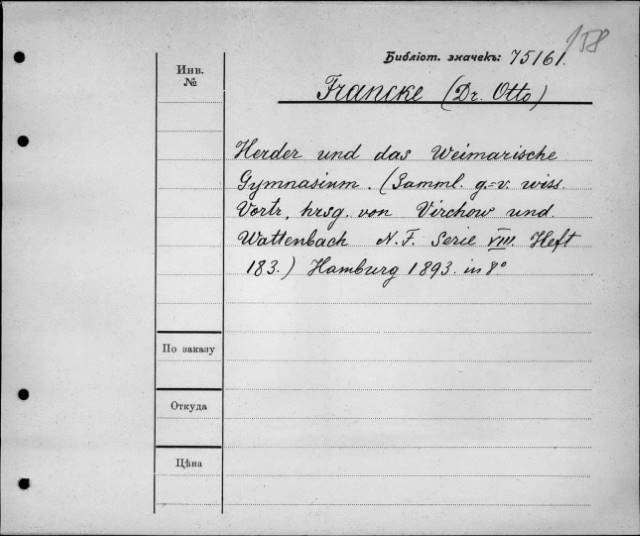 158
Библіот. значекъ: 75161.
Инв. №
Francke (Dr. Otto)
Herder und das Weimarische
Gymnasium. (Samml. g.=v. wiss.
Vortr. hrsg. von Virchow und
Wattenbach N.F. Serie VIII. Heft
183.) Hamburg 1893. in 8°
По заказу
Откуда
Цѣна